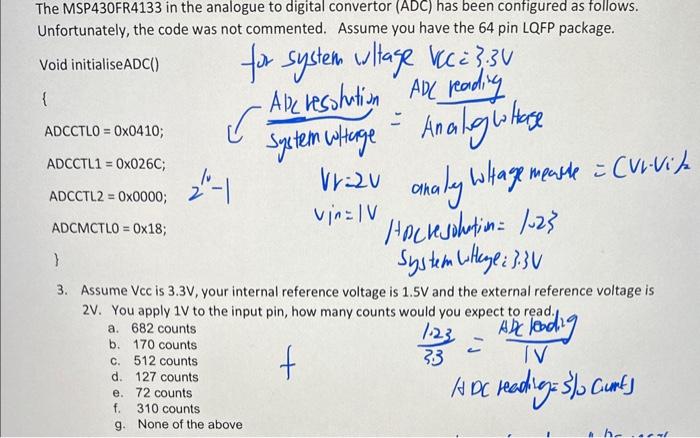 The MSP430FR4133 in the analogue to digital convertor (ADC) has been configured as follows.
Unfortunately, the code was not commented. Assume you have the 64 pin LQFP package.
for system voltage Vcc = 3.3V
Void initialiseADC()
{
ADC resolution
ADC reading
System voltage = Analog voltage
ADCCTL0 = 0x0410;
ADCCTL1 = 0x026C;
Vr=2V
analog voltage
ADCCTL2 = 0x0000;
2^10-1
Vin=1V
ADCMCTL0 = 0x18;
ADC resolution = 1023
}
System voltage: 3.3V
3. Assume Vcc is 3.3V, your internal reference voltage is 1.5V and the external reference voltage is
2V. You apply 1V to the input pin, how many counts would you expect to read.
a. 682 counts
b. 170 counts
c. 512 counts
d. 127 counts
e. 72 counts
f. 310 counts
g. None of the above
f
1023
3.3
=
ADC reading
1V
ADC reading = 310 counts